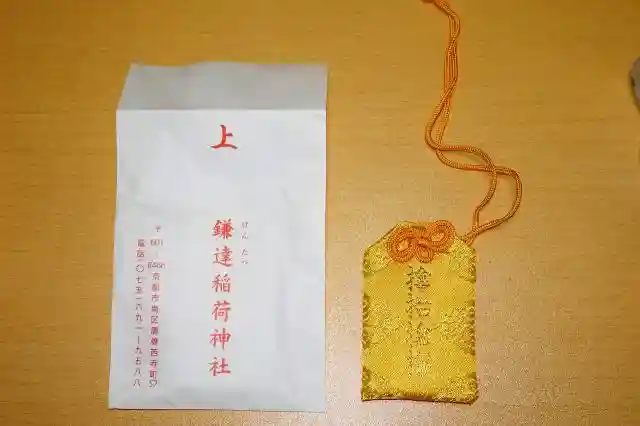 上
けんたつ
鎌達稲荷神社
〒601-8466 京都市南区唐橋西寺町57
電話(〇七五)六九一-九五八八